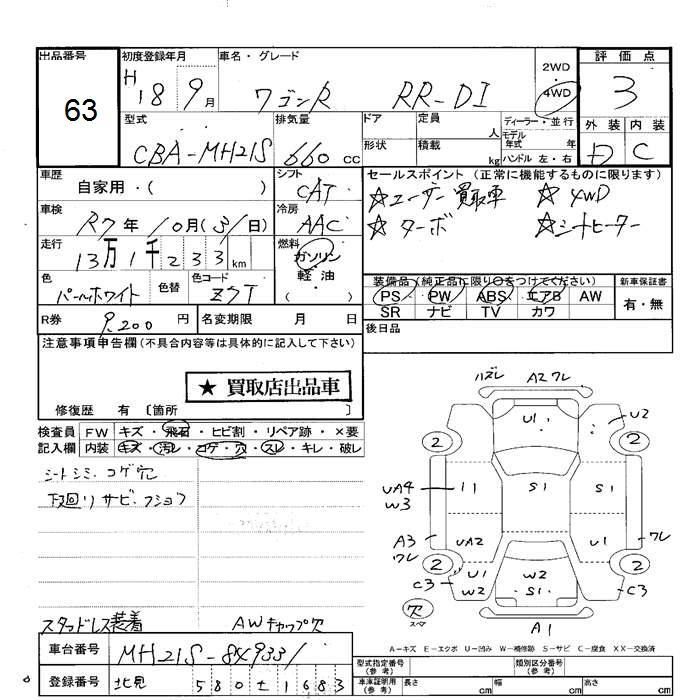 出品番号 63
初度登録年月 H18 9月
車名・グレード ワゴンR RR-DI
2WD・4WD
評価点 3
外装 D 内装 C
型式 CBA-MH21S
排気量 660cc
ドア
定員 人
ディーラー・並行
モデル年式 年
形状
積載 kg
ハンドル 左・右
車歴 自家用・( )
シフト CAT
セールスポイント (正常に機能するものに限ります)
☆ユーザー買取車 ☆4WD
☆ターボ ☆シートヒーター
車検 R7年10月(31日)
冷房 AAC
走行 13万1千233km
燃料 ガソリン 軽油 ( )
色 パールホワイト 色替
色コード Z7T
装備品 (純正品に限り○をつけてください)
新車保証書 有・無
PS PW ABS エアB AW
SR ナビ TV カワ
R券 9,200円
名変期限 月 日
後日品
注意事項申告欄 (不具合内容等は具体的に記入して下さい)
★ 買取店出品車
修復歴 有 〔箇所 〕
検査員記入欄
FW キズ・飛石・ヒビ割・リペア跡・×要
内装 キズ・汚レ・コゲ・穴・スレ・キレ・破レ
シートシミ・コゲ穴
下廻リサビ・フショク
スタッドレス装着 AWキャップ欠
ハズレ A2ワレ
U1 U2
2 2
UA4 W3 11 S1 S1
A3 ワレ UA2 U1 ワレ
2 2
C3 U1 W2 W2 S1 C3
欠 スペア
A1
A−キズ E−エクボ U−凹み W−補修跡 S−サビ C−腐食 XX−交換済
車台番号 MH21S-849331
登録番号 北見 580 ± 1683
型式指定番号(参考)
類別区分番号(参考)
車庫証明用(参考) 長さ cm 幅 cm 高さ cm